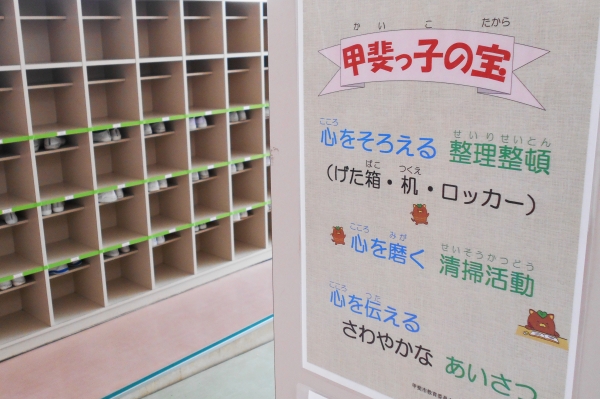 かいこ たから
甲斐っ子の宝
こころ せいりせいとん
心をそろえる 整理整頓
ばこ つくえ
（げた箱・机・ロッカー）
こころ みが せいそうかつどう
心を磨く 清掃活動
こころ つた
心を伝える
さわやかな あいさつ
甲斐市教育委